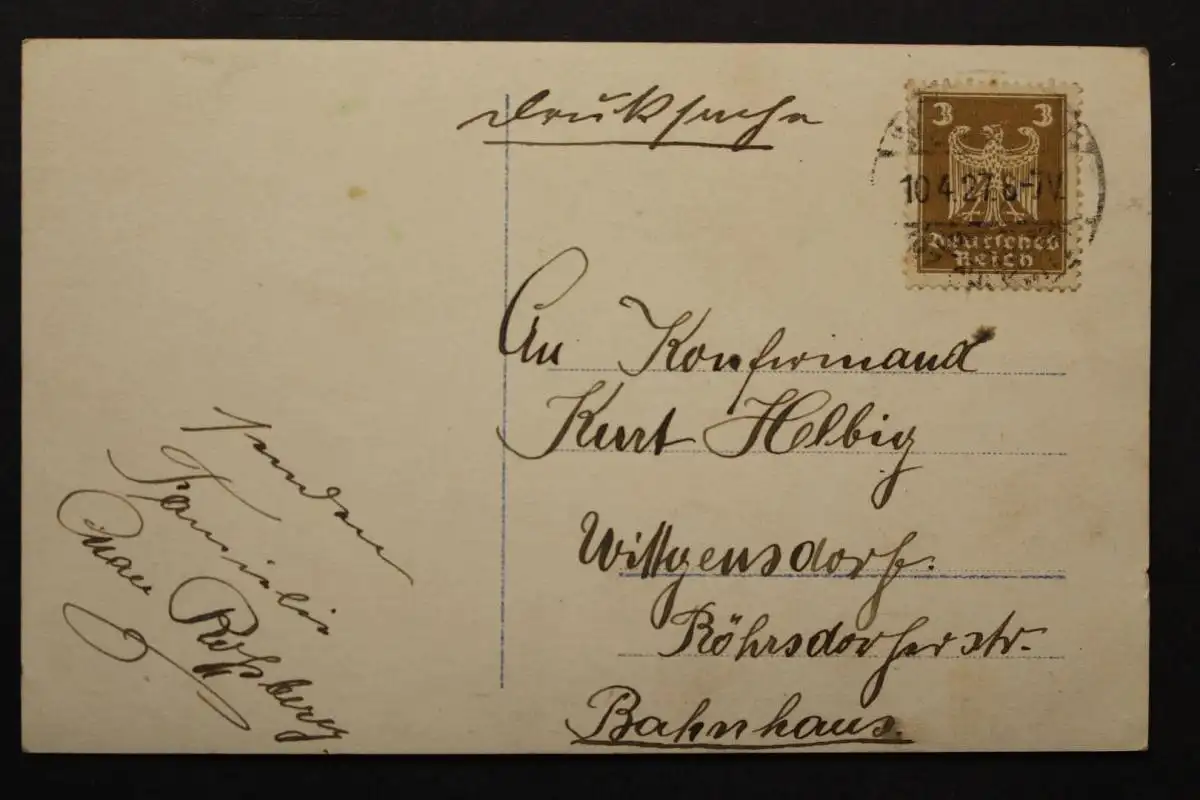 Drucksache
3 3
10 4.27.6-7V.
Deutsches
Reich
An Konfirmand
Kurt Helbig
Wittgensdorf.
Röhrsdorferstr.
Bahnhaus.
senden
Familie
Roßberg.